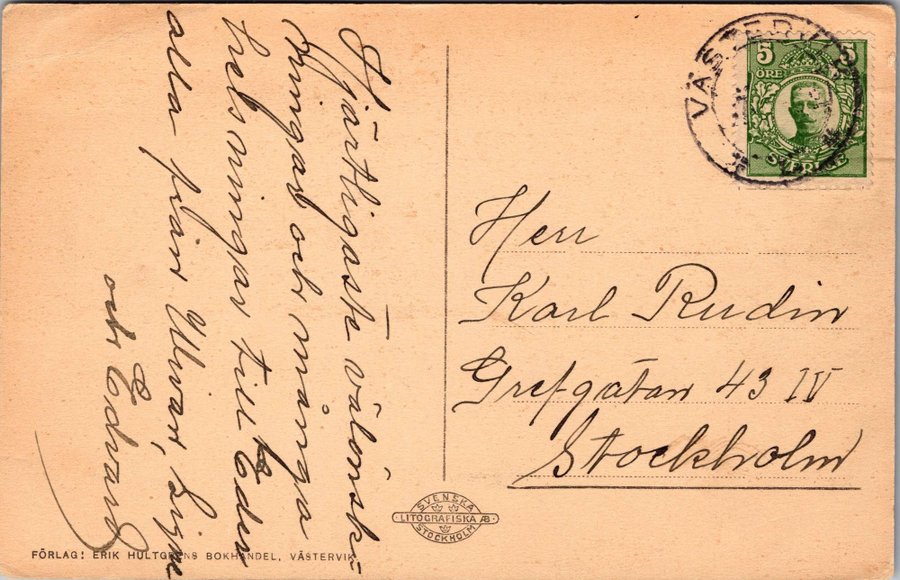 Hjärtligaste välönsk-
ningar och många
helsningar till Eder
alla från Unvar, Signe
och Edvard
VÄSTERVIK
5 5
ÖRE
SVERIGE
Herr
Karl Rudin
Grefgatan 43 IV
Stockholm
SVENSKA
LITOGRAFISKA AB
STOCKHOLM
FÖRLAG: ERIK HULTGRENS BOKHANDEL, VÄSTERVIK